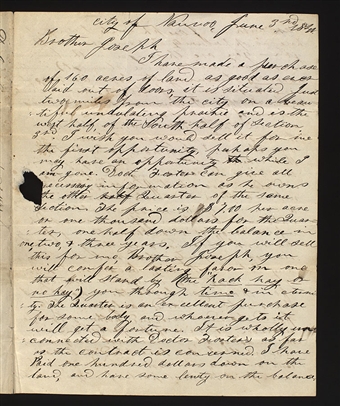 City of Nauvoo June 3rd
Brother Joseph
I have made a purchase
of 160 acres of land, as good as ever
laid out of doors, it is situated just
two miles from the city on a beau
tiful undulating prairie and is the
west half, of the South half of Section
3rd I wish you would sell it for me
the first opportunity, perhaps you
may have an opportunity while I
am gone. Doct. Foster can give all
necessary information as he owns
the other half Quarter of the same
Section. The price is per acre
or one thousand dollars for the Quar
ter, one half down the balance in
two, & three years. If you will sell
this for me, brother Joseph, you
will confer a lasting favor on one
that will stand by (the Rack hay to
hay) you through time & in eterni
ty. The Quarter is an excellent purchase
for some body, and whoever gets it
will get a fortune. It is wholly
connected with Doctor Fosters as far
as the contract is concerned. I have
Paid one hundred dollars down on the
land, and have some lenty on the balance,